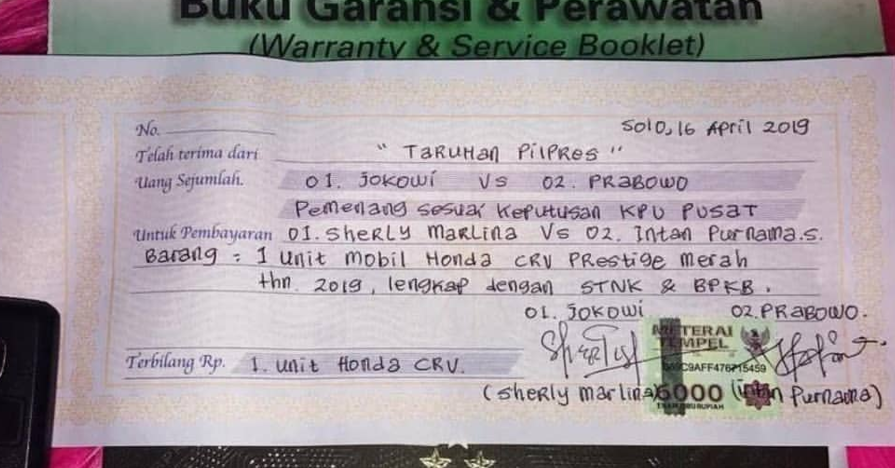 Buku Garansi & Perawatan
(Warranty & Service Booklet)
No. Solo, 16 April 2019
Telah terima dari " TARUHAN PILPRES "
Uang Sejumlah. 01. JOKOWI VS 02. PRABOWO
Pemenang sesuai keputusan KPU PUSAT
Untuk Pembayaran 01. Sherly Marlina VS 02. Intan Purnama.s.
Barang : 1 Unit mobil Honda CRV Prestige merah
thn 2019, lengkap dengan STNK & BPKB.
01. JOKOWI 02. PRABOWO.
METERAI
TEMPEL
476715459
Terbilang Rp. 1. Unit Honda CRV.
6000
(Sherly marlina) (intan Purnama)